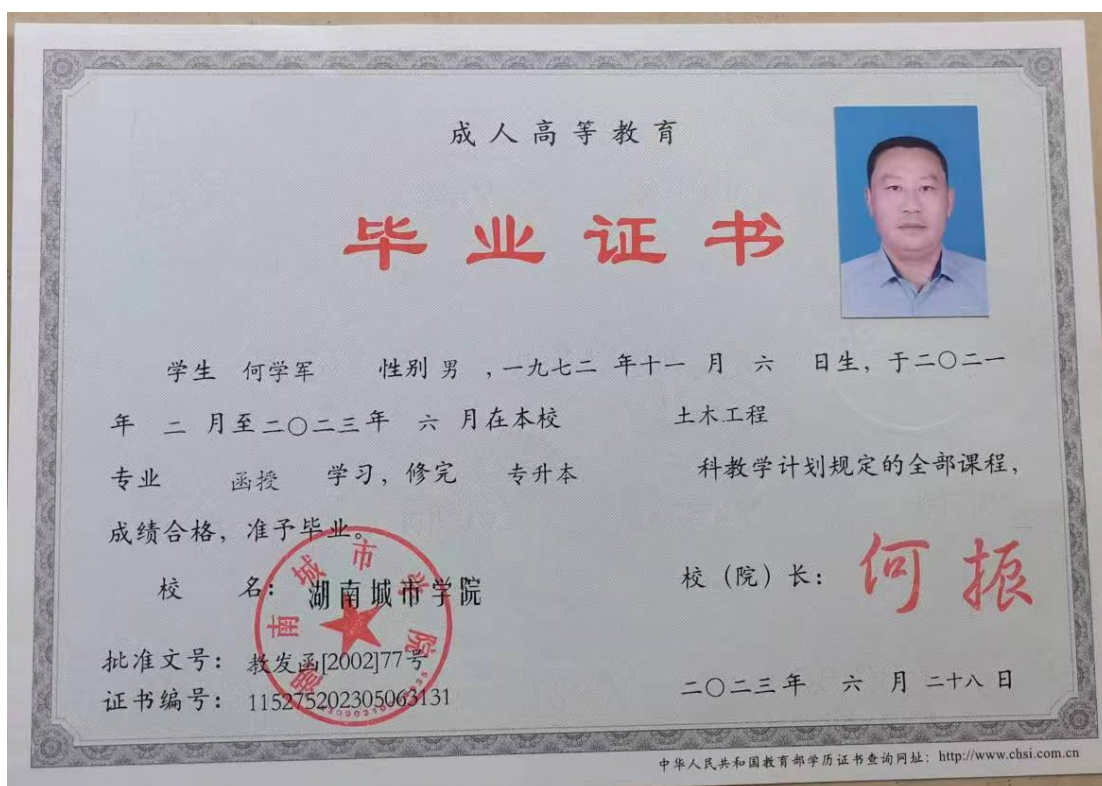 成人高等教育
毕业证书
学生 何学军 性别 男 ,一九七二 年十一 月 六 日生, 于二〇二一
年 二 月至二〇二三年 六 月在本校 土木工程
专业 函授 学习, 修完 专升本 科教学计划规定的全部课程,
成绩合格, 准予毕业。
校 名: 湖南城市学院
湖南城市学院
校（院）长: 何振
批准文号: 教发函[2002]77号
证书编号: 115275202305063131
二〇二三年 六 月 二十八 日
中华人民共和国教育部学历证书查询网址: http://www.chsi.com.cn